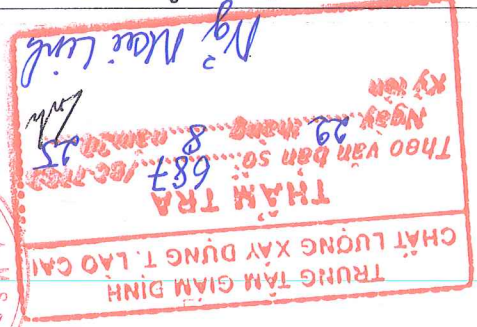 TRUNG TÂM GIÁM ĐỊNH
CHẤT LƯỢNG XÂY DỰNG T. LÀO CAI
THẨM TRA
Theo văn bản số 687
Ngày 29 tháng 8 năm 2025
Ký tên
Ng Mai Linh